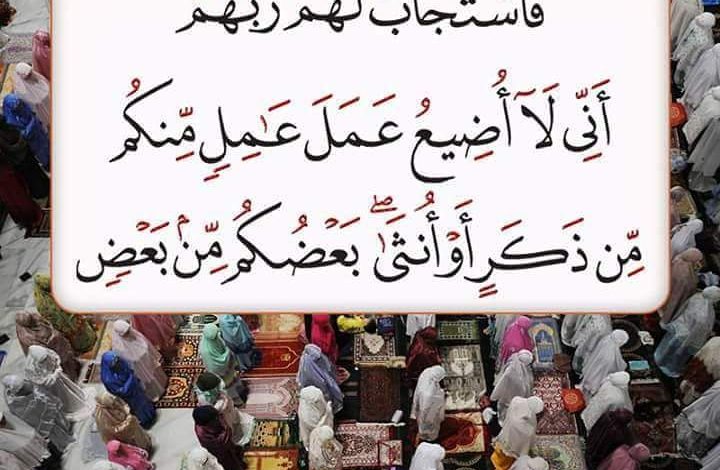 فَاسْتَجَابَ لَهُمْ رَبُّهُمْ
أَنِّى لَآ أُضِيعُ عَمَلَ عَٰمِلٍ مِّنكُم
مِّن ذَكَرٍ أَوْ أُنثَىٰ ۖ بَعْضُكُم مِّنۢ بَعْضٍ